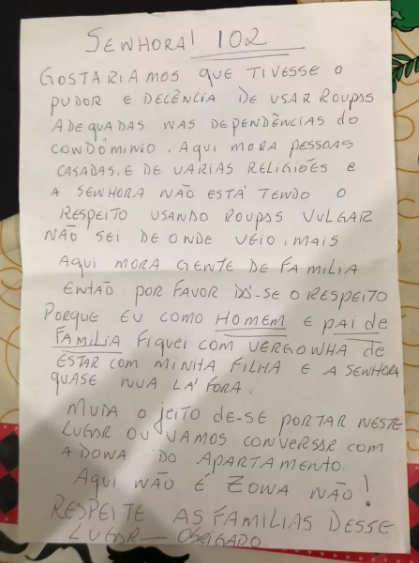 SENHORA! 102
GOSTARIAMOS QUE TIVESSE O
PUDOR E DECÊNCIA DE USAR ROUPAS
ADEQUADAS NAS DEPENDÊNCIAS DO
CONDÔMINIO. AQUI MORA PESSOAS
CASADAS, E DE VARIAS RELIGIÕES E
A SENHORA NÃO ESTÁ TENDO O
RESPEITO USANDO ROUPAS VULGAR
NÃO SEI DE ONDE VEIO, MAIS
AQUI MORA GENTE DE FAMILIA
ENTÃO POR FAVOR DÊ-SE O RESPEITO
PORQUE EU COMO HOMEM E PAI DE
FAMILIA FIQUEI COM VERGONHA DE
ESTAR COM MINHA FILHA E A SENHORA
QUASE NUA LÁ FORA.
MUDA O JEITO DE-SE PORTAR NESTE
LUGAR OU VAMOS CONVERSAR COM
A DONA DO APARTAMENTO.
AQUI NÃO É ZONA NÃO!
RESPEITE AS FAMILIAS DESSE
LUGAR — OBRIGADO.